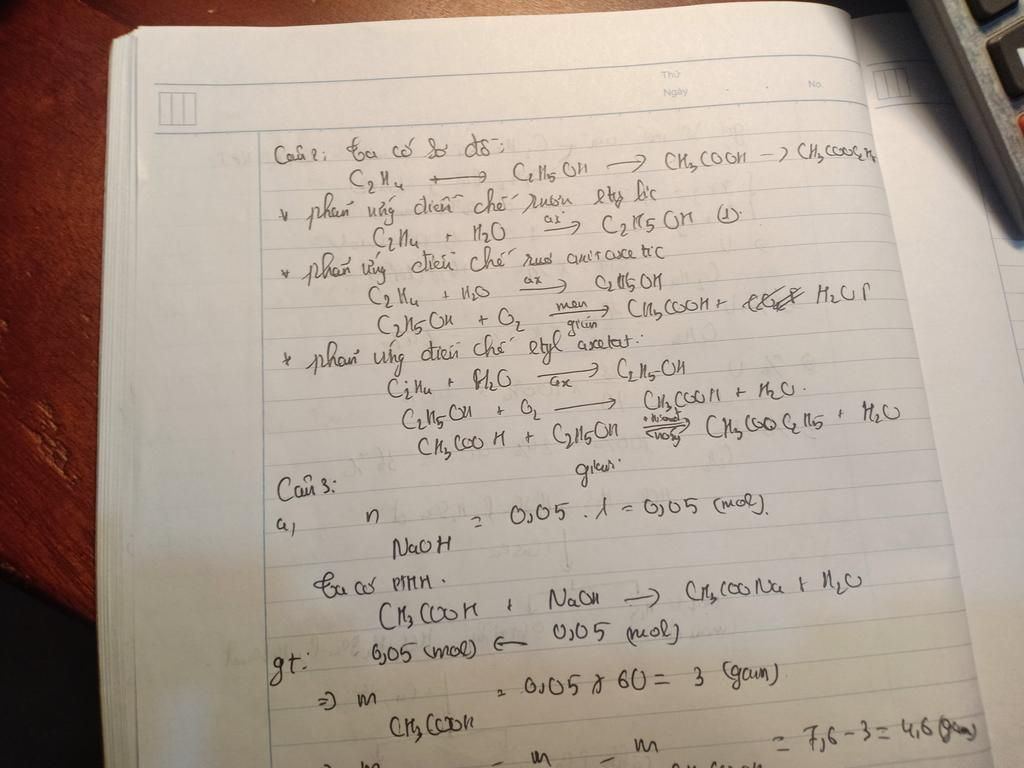 Thứ
Ngày
No.
Câu 2: Ta có sơ đồ:
C2H4 ⟶ C2H5OH ⟶ CH3COOH → CH3COOC2H5
* phản ứng điều chế rượu etylic
C2H4 + H2O —ax→ C2H5OH (1).
* phản ứng điều chế axit axetic
C2H4 + H2O —ax→ C2H5OH
C2H5OH + O2 —men giấm→ CH3COOH + H2O
* phản ứng điều chế etyl axetat:
C2H4 + H2O —ax→ C2H5OH
C2H5OH + O2 ⟶ CH3COOH + H2O.
CH3COOH + C2H5OH ⇌ CH3COOC2H5 + H2O
Câu 3:
a, n NaOH = 0,05 . 1 = 0,05 (mol).
Ta có PTHH.
CH3COOH + NaOH ⟶ CH3COONa + H2O
gt: 0,05 (mol) ← 0,05 (mol)
=> m CH3COOH = 0,05 x 60 = 3 (gam)
=> m = m - m = 7,6 - 3 = 4,6 (gam)